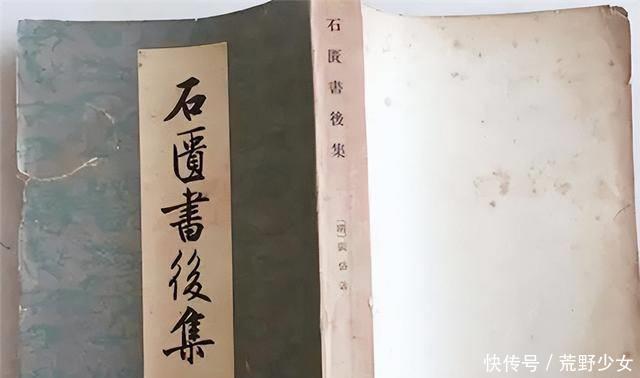 石匱書後集
石匱書後集
[明]張岱著
快传号／荒野少女